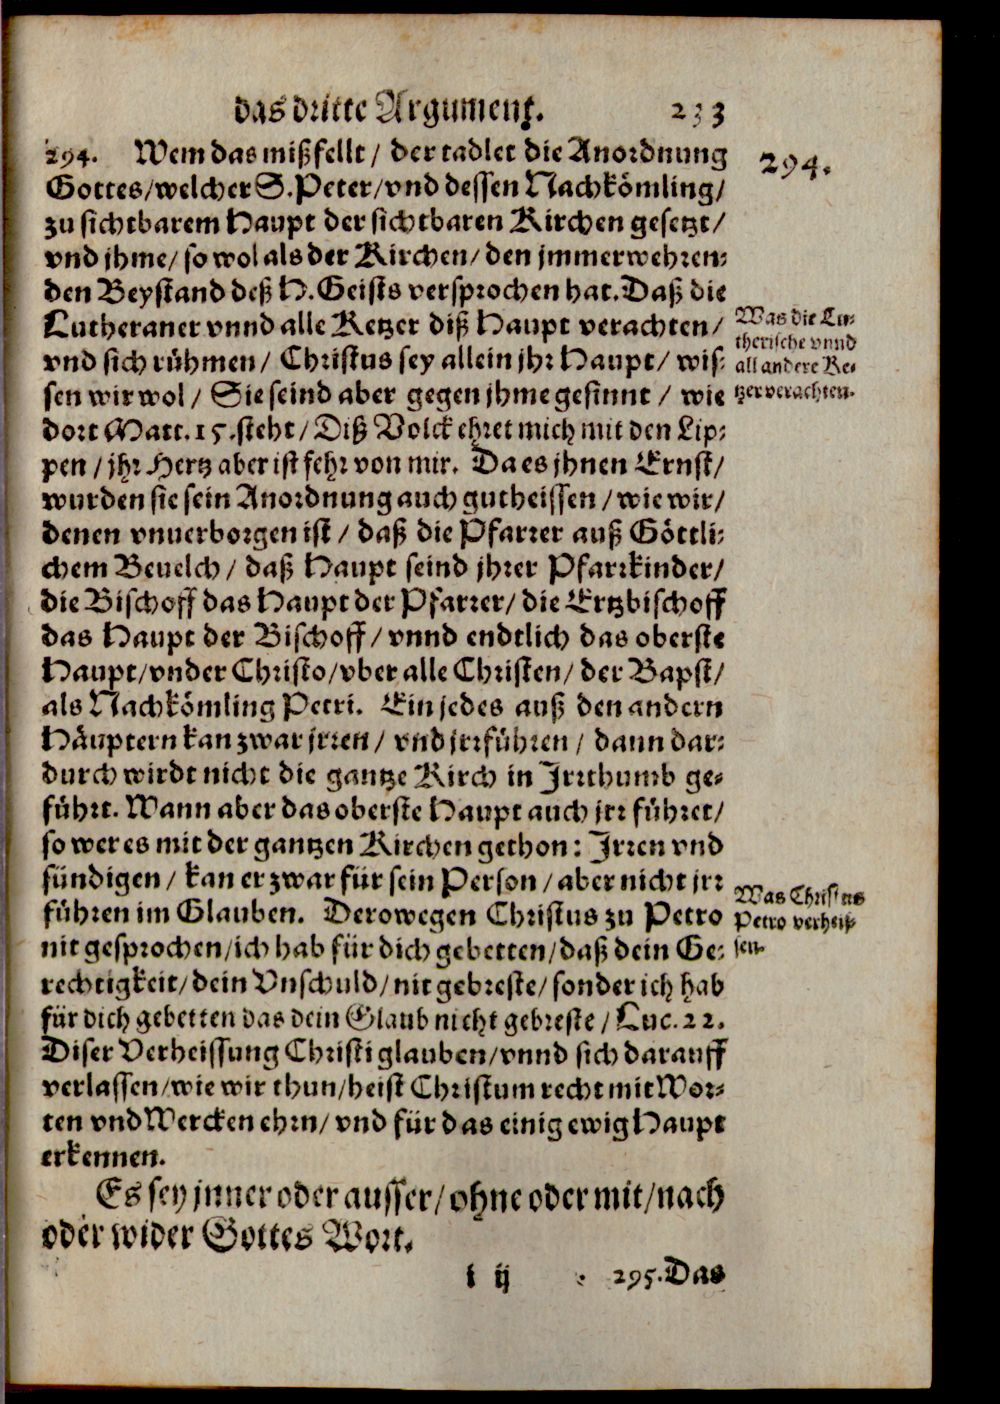 das dritte Argument. 233
294. Wem das mißfellt / der tadlet die Anordnung
294.
Gottes/welcher S. Peter/vnd dessen Nachkömling/
zu sichtbarem Haupt der sichtbaren Kirchen gesetzt/
vnd jhme/ so wol als der Kirchen/ den jmmerwehren⸗
den Beystand deß H. Geists versprochen hat. Daß die
Lutheraner vnnd alle Ketzer diß Haupt verachten/
vnd sich rühmen/ Christus sey allein jhr Haupt/ wis⸗
sen wir wol / Sie seind aber gegen jhme gesinnt / wie
Was die Lu⸗
therische vnnd
all andere Ke⸗
tzer verachten.
dort Matt. 15. steht/ Diß Volck ehret mich mit den Lip⸗
pen / jhr Hertz aber ist fehr von mir. Da es jhnen Ernst/
wurden sie sein Anordnung auch gutheissen / wie wir/
denen vnuerborgen ist / daß die Pfarrer auß Göttli⸗
chem Beuelch / daß Haupt seind jhrer Pfarrkinder/
die Bischoff das Haupt der Pfarrer/ die Ertzbischoff
das Haupt der Bischoff/ vnnd endtlich das oberste
Haupt/vnder Christo/vber alle Christen/ der Bapst/
als Nachkömling Petri. Ein jedes auß den andern
Häuptern kan zwar jrren/ vnd jrrführen / dann dar⸗
durch wirdt nicht die gantze Kirch in Jrrthumb ge⸗
führt. Wann aber das oberste Haupt auch jrr führet/
so wer es mit der gantzen Kirchen gethon: Jrren vnd
sündigen / kan er zwar für sein Person / aber nicht jrr
führen im Glauben. Derowegen Christus zu Petro
nit gesprochen/ich hab für dich gebetten/daß dein Ge⸗
Was Christus
Petro verheis⸗
sen.
rechtigkeit/dein Vnschuld/nit gebreste/sonder ich hab
für dich gebetten das dein Glaub nicht gebreste / Luc. 22.
Diser Verheissung Christi glauben/vnnd sich darauff
verlassen/wie wir thun/heist Christum recht mit Wor⸗
ten vnd Wercken ehrn/ vnd für das einig ewig Haupt
erkennen.
Es sey jnner oder ausser/ ohne oder mit/nach
oder wider Gottes Wort.
i ij 295. Das